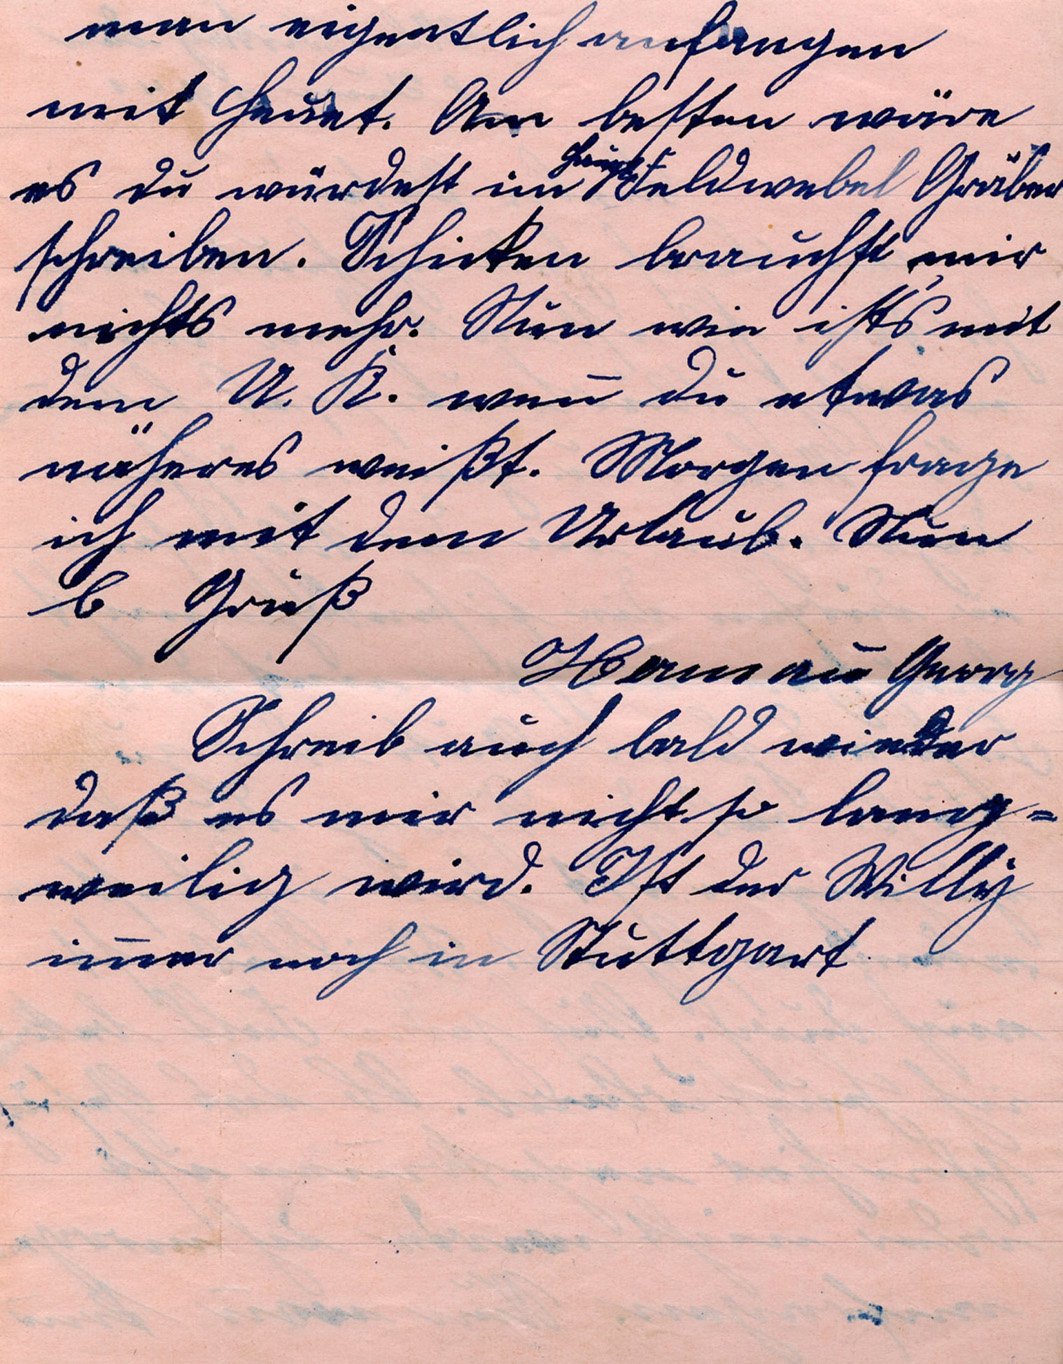 man eigentlich anfangen
mit Heuet. Am besten wäre
es du würdest im Haupt-Feldwebel Gräber
schreiben. Schicken brauchst mir
nichts mehr. Nun wie ists mit
dem U. K. wen̅ du etwas
näheres weißt. Morgen frage
ich mit dem Urlaub. Nun
b Gruß
Georg
Schreib auch bald wieder
daß es mir nicht so lang=
weilig wird. Ist der Willy
im̅er noch in Stuttgart